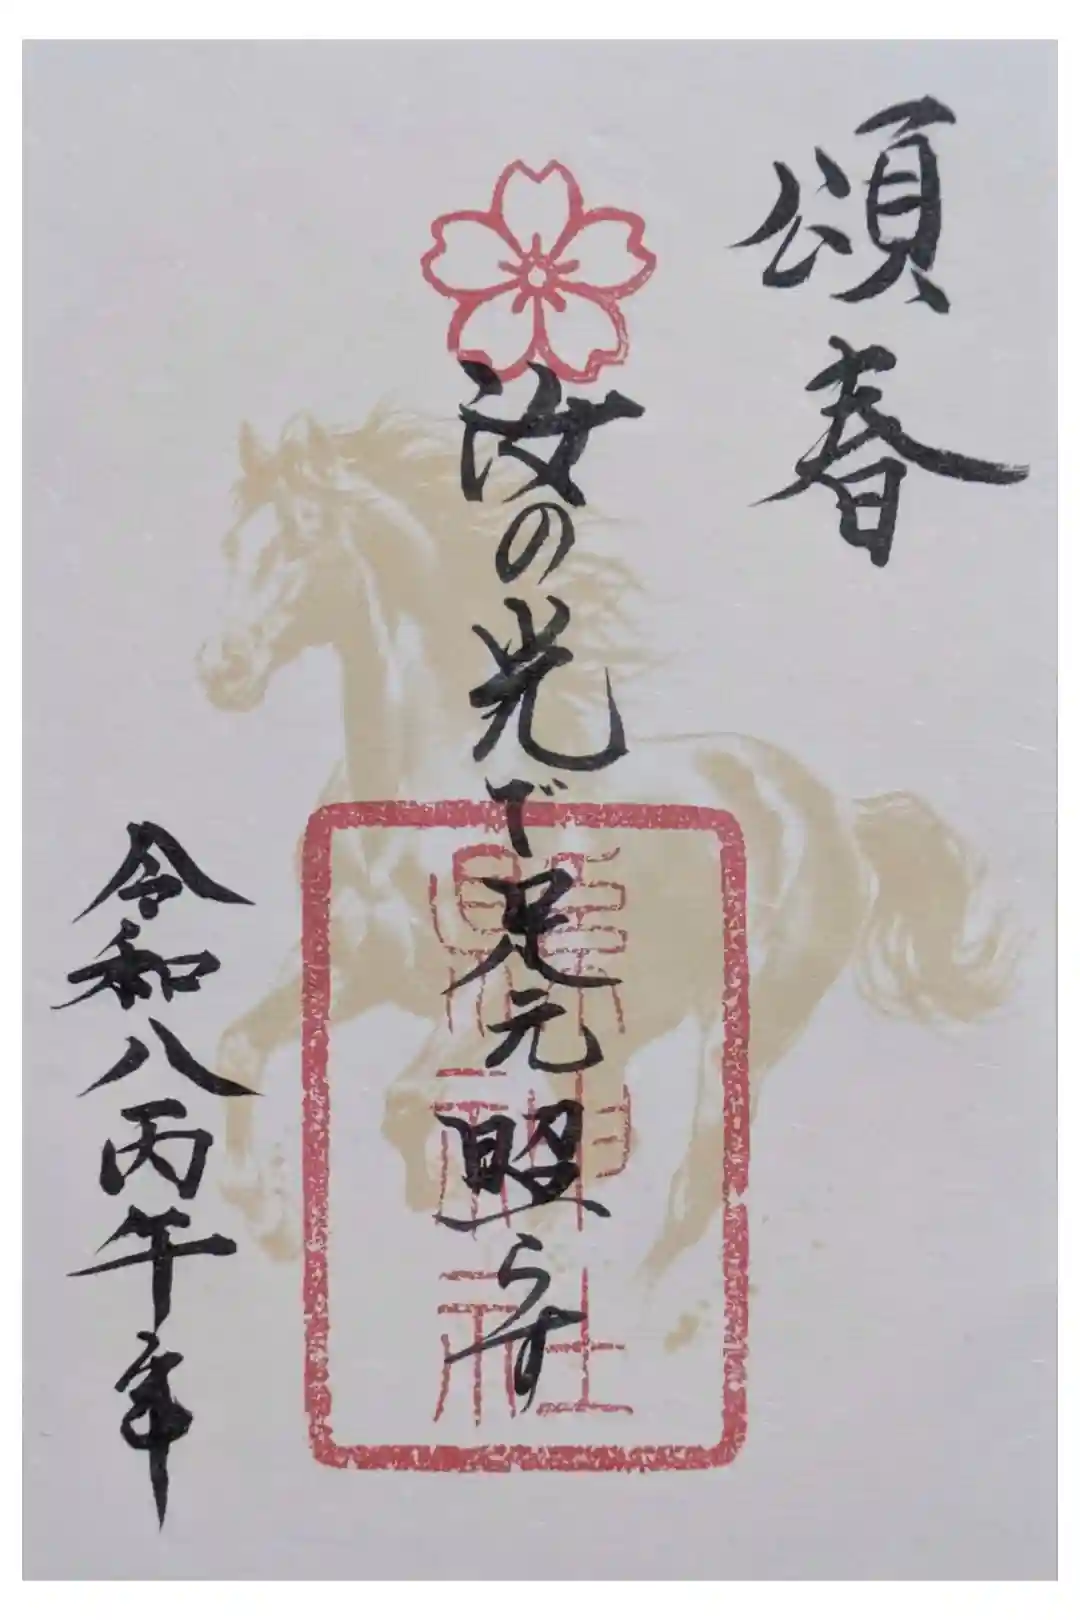 頌春
汝の光で足元照らす
令和八丙午年
神社